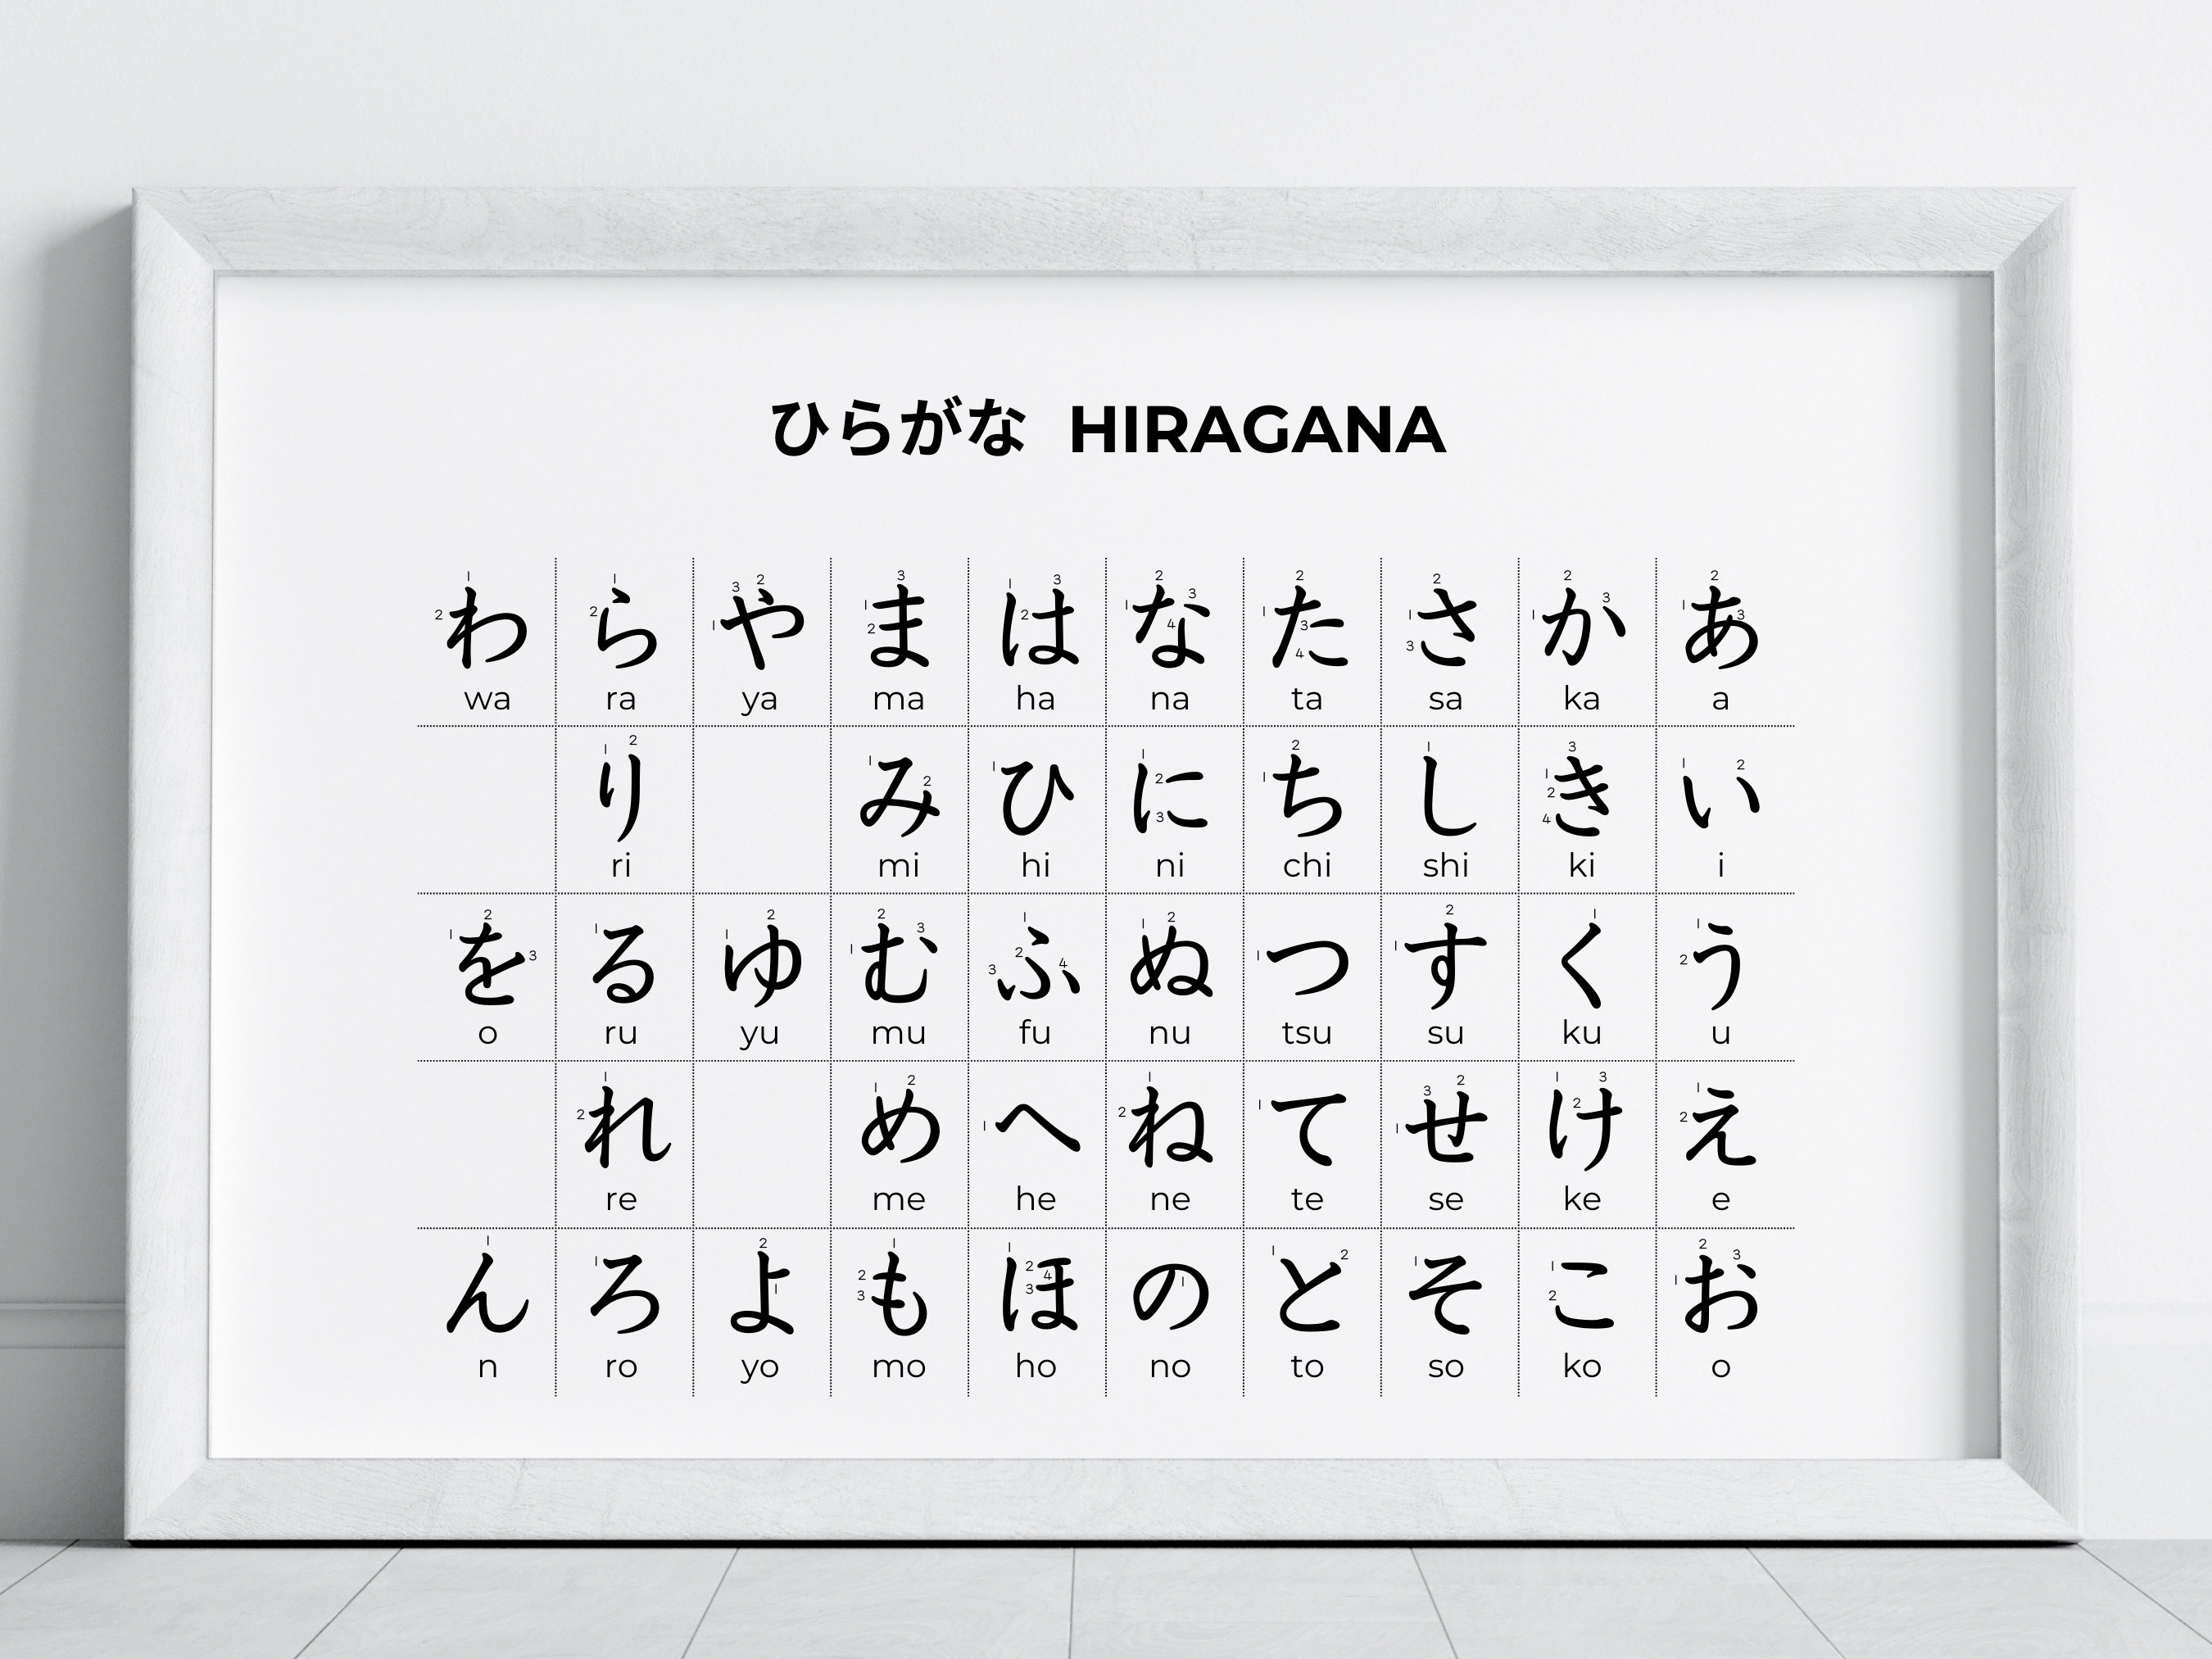 ひらがな HIRAGANA
わ ら や ま は な た さ か あ
wa ra ya ma ha na ta sa ka a
り み ひ に ち し き い
ri mi hi ni chi shi ki i
を る ゆ む ふ ぬ つ す く う
o ru yu mu fu nu tsu su ku u
れ め へ ね て せ け え
re me he ne te se ke e
ん ろ よ も ほ の と そ こ お
n ro yo mo ho no to so ko o